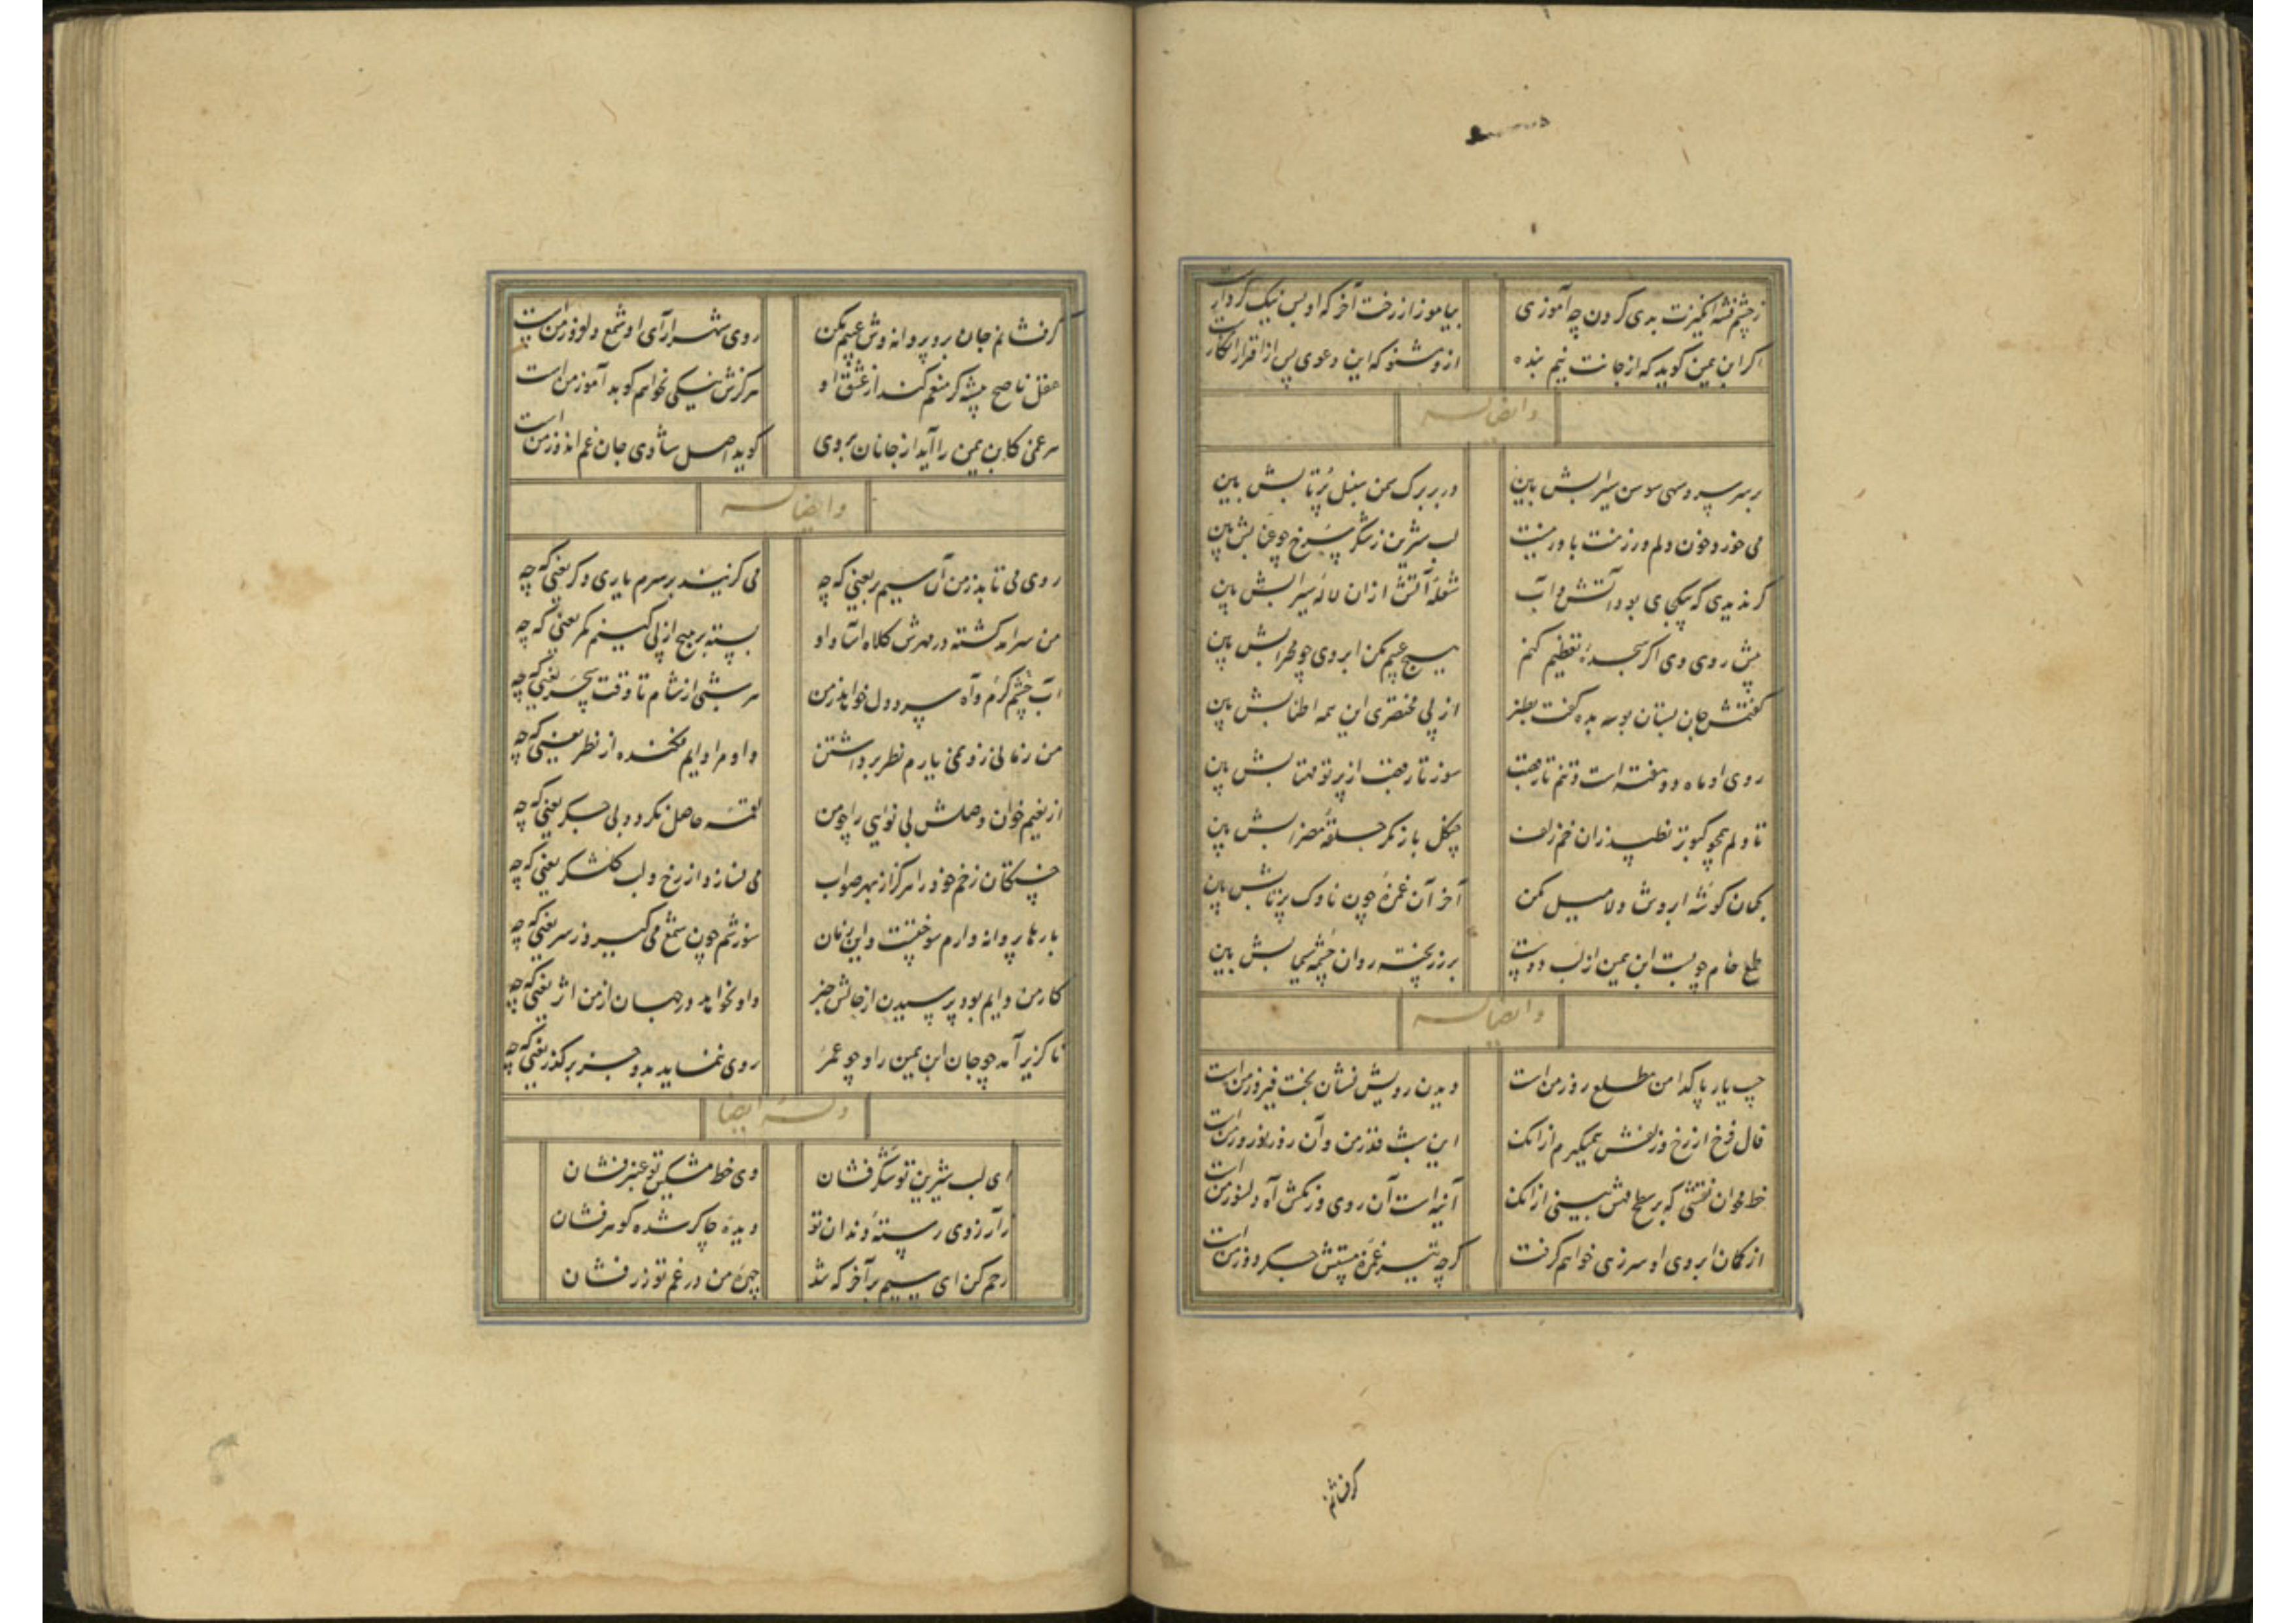 ز چشم فتنه انگیزت بدی کردن چه آموزی بیاموز از رخت آخر که او بس نیک کردارست
اگر ابن یمین گوید که از جانت نیم بنده ازو مشنو که این دعوی پس از اقرار انکارست
وایضاله
بر سر سرو سهی سوسن سیرابش بین در بر برگ سمن سنبل پرتابش بین
می خورد خون دلم ور زمنت باور نیست لب شیرین ز شکر سرخ چو عنابش بین
گر ندیدی که بیکجای بود آتش و آب شعلهٔ آتش از آن لالهٔ سیرابش بین
پیش روی وی اگر سجدهٔ تعظیم کنم هیچ عیبم مکن ابروی چو محرابش بین
گفتمش جان بستان بوسه بده گفت بطنز از پی مختصری این همه اطنابش بین
روی او ماه دو هفته است و تنم تار قصب سوز تار قصب از پرتو مهتابش بین
تا دلم همچو کبوتر نطپد زان خم زلف چنگل باز نگر حلقهٔ مضرابش بین
بکمان گوشهٔ ابروش دلا میل مکن آخر آن غمزهٔ چون ناوک پرتابش بین
طمع خام چو بست ابن یمین از لب دوست بر زر پخته روان چشمهٔ سیمابش بین
وایضاله
جیب یار پاکدامن مطلع روز من است دیدن رویش نشان بخت فیروز من است
فال فرخ از رخ و زلفش همیگیرم از انک این شب قدر من و آن روز نوروز من است
خط مخوان نقشی که بر سطح مهش بینی از انک آینه است آن روی و زنگش آه دلسوز من است
از کمان ابروی او سر زهی خواهم گرفت گرچه تیر غمزهٔ مستش جگر دوز من است
گر فشانم
گر فشانم جان برو پروانه وش عیبم مکن روی شهرآرای او شمع دلفروز من است
عقل ناصح پیشه گر منعم کند از عشق او هرگزش نیکی نخواهم کو بد آموز من است
هر غمی کابن یمین را آید از جانان بروی گوید اصل شادی جان غم اندوز من است
وایضاله
روی می تابد ز من آن سیمبر یعنی که چه می گزیند بر سرم یاری دگر یعنی که چه
من سرآمد گشته در مهرش کلاه آسا و او بسته بر هیچ از پی کینم کمر یعنی که چه
آب چشم گرم و آه سرد دل خواهد ز من هر شبی از شام تا وقت سحر یعنی که چه
من زمانی زو نمی یارم نظر برداشتن و او مرا دایم فکنده از نظر یعنی که چه
از نعیم خوان وصلش بی نوایی را چو من لقمه حاصل نگردد بی جگر یعنی که چه
خستگان زخم خود را هرگز از بهر صواب می نسازد از رخ و لب گلشکر یعنی که چه
بارها پروانه وارم سوختست و این زمان سوزشم چون شمع می گیرد ز سر یعنی که چه
کار من دایم بود پرسیدن از حالش خبر و او نخواهد در جهان از من اثر یعنی که چه
ناگزیر آمد چو جان ابن یمین را و چو عمر روی ننماید بدو جز بر گذر یعنی که چه
وله ایضا
ای لب شیرین تو شکر فشان وی خط مشکین تو عنبر فشان
در آرزوی رستهٔ دندان تو دیدهٔ چاکر شده گوهر فشان
رحم کن ای سیم بر آخر که شد چهرهٔ من در غم تو زر فشان